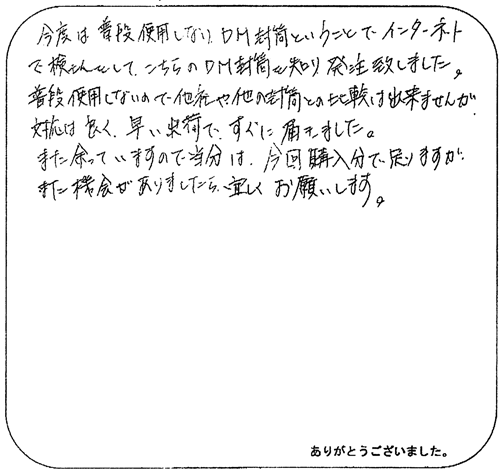 今度は普段使用しない、DM封筒ということで、インターネット
で検さくして、こちらのDM封筒を知り発注致しました。
普段使用しないので他社や他の封筒との比較は出来ませんが
対応は良く、早い出荷で、すぐに届きました。
まだ余っていますので当分は、今回購入分で足りますが、
また機会がありましたら、宜しくお願いします。
ありがとうございました。